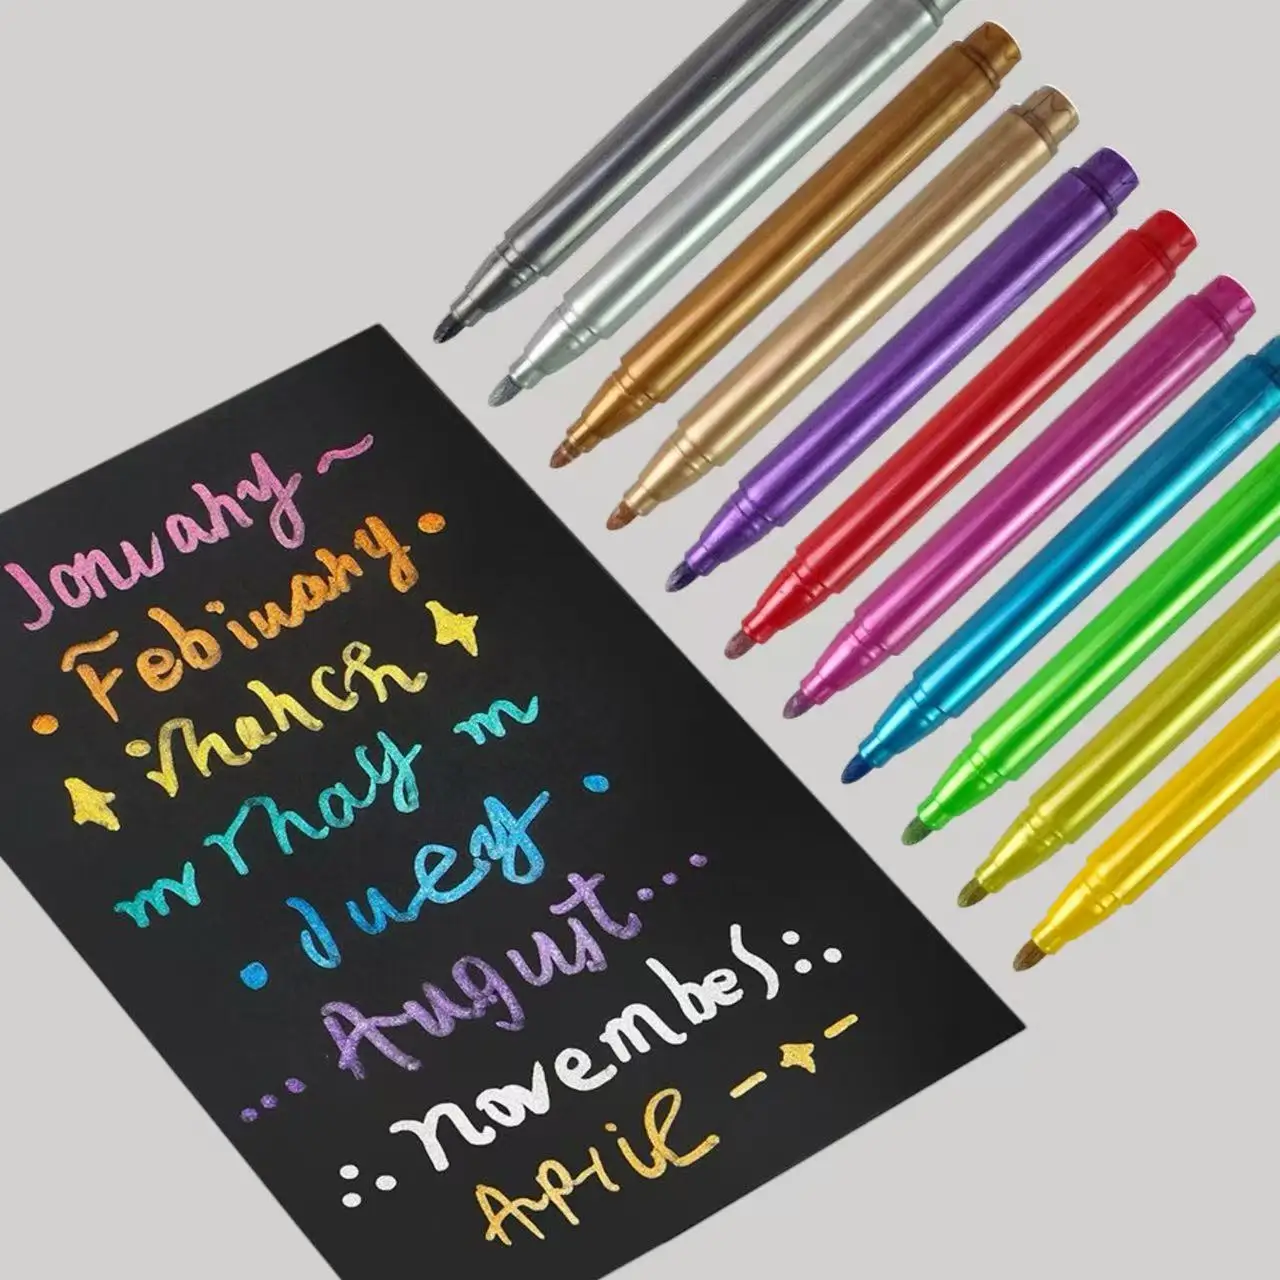 Jonuahy ~
• Febiuahy •
rhahch
m rhay m
• Juey •
... August ...
novembes
Aprie